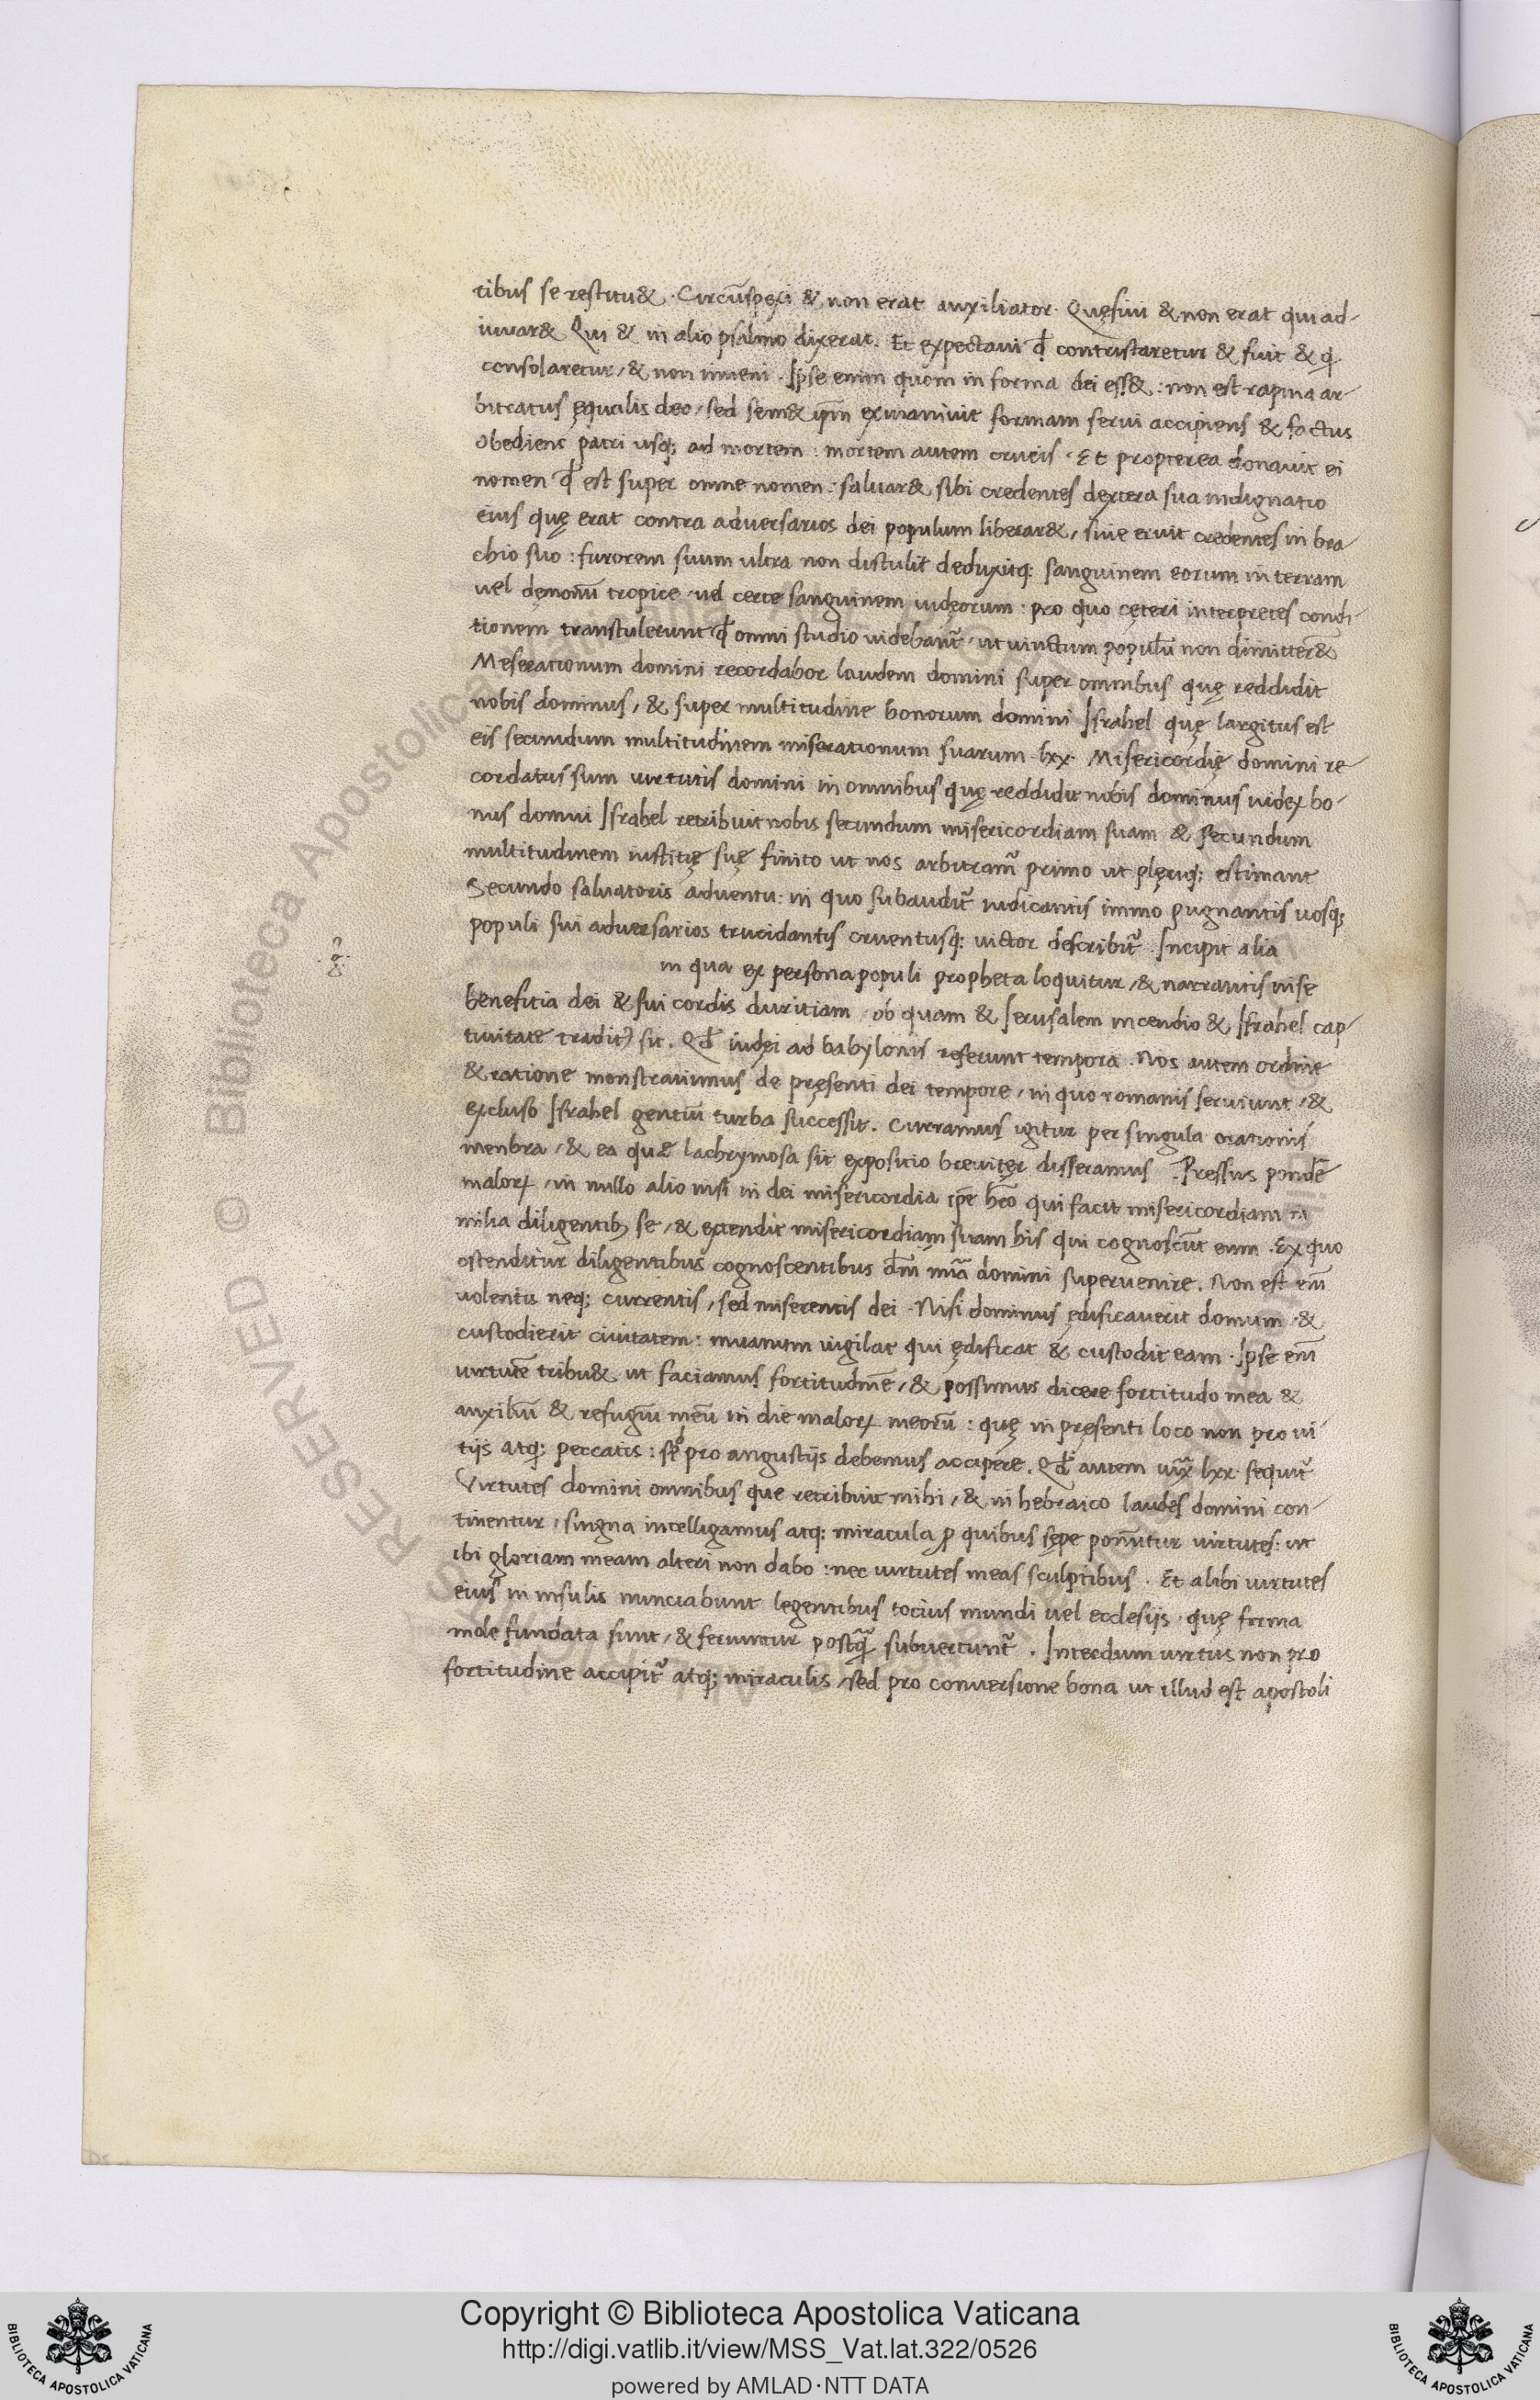 tibus se restitu& · Circūspexi & non erat auxiliator · Quęsiui & non erat qui ad-
iuuar& Qui & in alio psalmo dixerat. Et expectaui qđ contristaretur & fuit & q
consolaretur, & non inueni. Ipse enim quom in forma dei ess&: non est rapina ar-
bitratus ęqualis deo, sed sem& ip̄m exinaniuit formam serui accipiens & factus
obediens patri usq; ad mortem: mortem autem crucis. Et propterea donauit ei
nomen qđ est super omne nomen: saluar& sibi credentes dextera sua indignatio
eius quę erat contra aduersarios dei populum liberar&, siue eruit credentes in bra
chio suo: furorem suum ultra non distulit deduxitq; sanguinem eorum in terram
uel dęmonū tropice, uel certe sanguinem iudęorum: pro quo cęteri interpretes condi
tionem transtulerunt qđ omni studio uidebant̄, ut uinctum populū non dimitter&
Meserationum domini recordabor laudem domini super omnibus quę reddidit
nobis dominus, & super multitudine bonorum domini Israhel quę largitus est
eis secundum multitudinem miserationum suarum lxx. Misericordię domini re
cordatus sum uirtutis domini in omnibus quę reddidit nobis dominus uidex bo-
nus domui Israhel retribuit nobis secundum misericordiam suam & secundum
multitudinem iustitię suę finito ut nos arbitram̄ primo ut plęriq; estimant
Secundo saluatoris aduentu: in quo subaudit̄ iudicantis immo pugnantis uosq;
populi sui aduersarios trucidantis cruentusq; uictor describit̄. Incipit alia
in qua ex persona populi propheta loquitur, & narrantis in se
benefitia dei & sui cordis duritiam, ob quam & Ierusalem incendio & Israhel cap-
tiuitate tradit) sit. Qđ iudęi ad babylonis referunt tempora. Nos autem ordine
& ratione monstrauimus de pręsenti dei tempore, in quo romanis seruiunt, &
excluso Israhel gentiū turba successit. Curramus igitur per singula orationis
menbra, & ea quæ lachrymosa sit expositio breuiter disseramus. Pressus pondē
malorꝝ, in nullo alio nisi in dei misericordia ip̄e hēo qui facit misericordiam in
milia diligentibꝫ se, & extendit misericordiam suam his qui cognoscūt eum. Ex quo
ostenditur diligentibus cognoscentibus dm̄ mīa domini superuenire. Non est em̄
uolentis neq; currentis, sed miserentis dei. Nisi dominus ędificauerit domum, &
custodierit ciuitatem: inuanum uigilat qui ędificat & custodit eam. Ipse em̄
uirtutē tribu& ut faciamus fortitudinē, & possimus dicere fortitudo mea &
auxiliū & refugiū meū in die malorꝝ meorū: quę in pręsenti loco non pro ui
tijs atq; peccatis: sꝫ pro angustijs debemus accipere. Qđ autem lxx. sequit̄
Virtutes domini omnibus que retribuit mihi, & in hebraico laudes domini con-
tinentur, singna intelligamus atq; miracula ꝓ quibus sępe ponūtur uirtutes: ut
ibi gloriam meam alteri non dabo: nec uirtutes meas sculptibus. Et alibi uirtutes
eius in insulis nunciabunt legentibus tocius mundi uel ecclesijs, quę firma
mole fundata sunt, & feruntur postq̄ subuertunt̄. Interdum uirtus non pro
fortitudine accipit̄ atq; miraculis, sed pro conuersione bona ut illud est apostoli
Copyright © Biblioteca Apostolica Vaticana
http://digi.vatlib.it/view/MSS_Vat.lat.322/0526
powered by AMLAD·NTT DATA